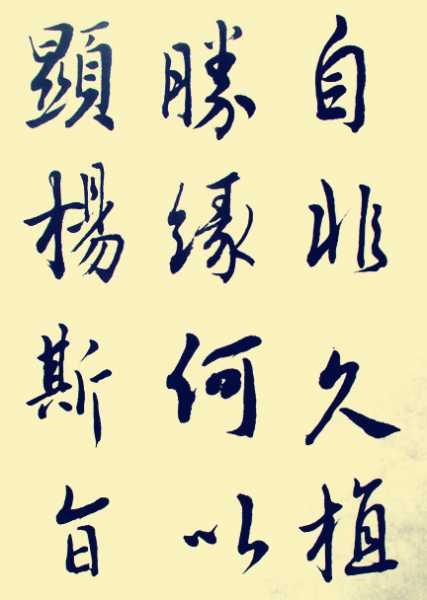 自非久植
勝緣何以
顯楊斯旨